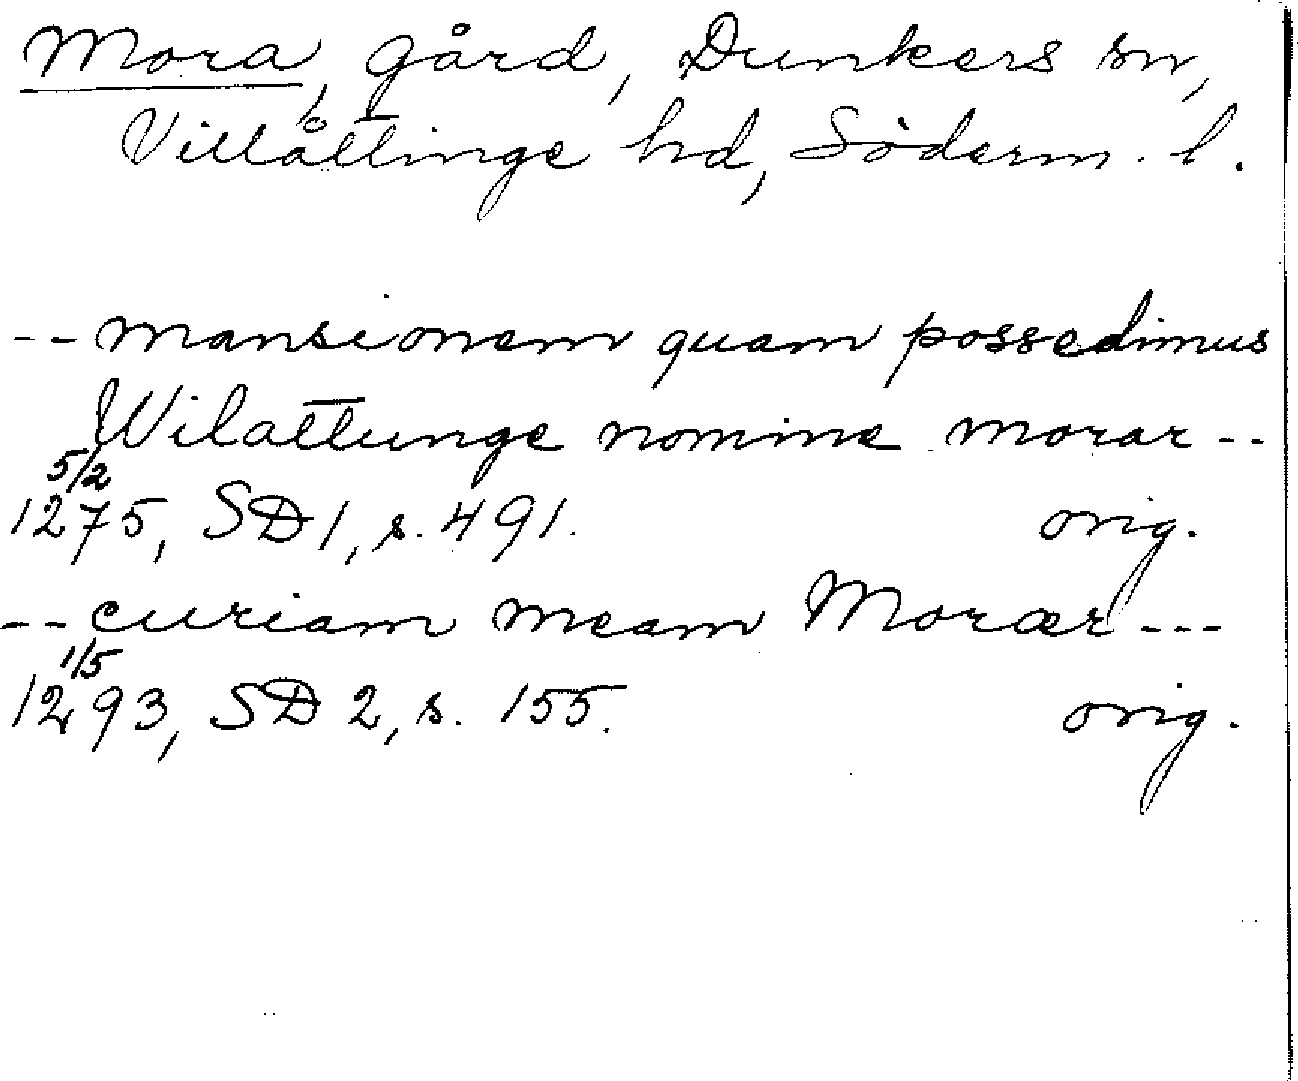 Mora, gård, Dunkers sn,
Villåttinge hd, Söderm. l.
-- mansionem quam possedimus
Wilattunge nomine morar --
5/2
1275, SD 1, s. 491. orig.
-- curiam meam Moræр ---
1/5
1293, SD 2, s. 155. orig.